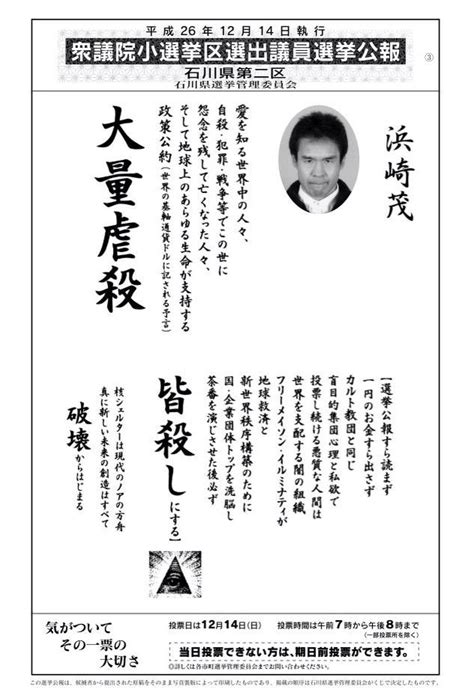 平成26年12月14日執行
衆議院小選挙区選出議員選挙公報
③
石川県第二区
石川県選挙管理委員会
浜崎茂
愛を知る世界中の人々、
自殺・犯罪・戦争等でこの世に
怨念を残して亡くなった人々、
そして地球上のあらゆる生命が支持する
政策公約(世界の基軸通貨ドルに記される予言)
大量虐殺
【選挙公報すら読まず
一円のお金すら出さず
カルト教団と同じ
盲目的集団心理と私欲で
投票し続ける悪質な人間は
世界を支配する闇の組織
フリーメイソン・イルミナティが
地球救済と
新世界秩序構築のために
国・企業団体トップを洗脳し
茶番を演じさせた後必ず
皆殺しにする】
核シェルターは現代のノアの方舟
真に新しい未来の創造はすべて
破壊からはじまる
気がついて
その一票の
大切さ
投票日は12月14日(日)
投票時間は午前7時から午後8時まで
(一部投票所を除く)
当日投票できない方は、期日前投票ができます。
◎詳しくは各市町選挙管理委員会までお問い合わせください。
この選挙公報は、候補者から提出された原稿をそのまま写真製版によって印刷したものであり、掲載の順序は石川県選挙管理委員会がくじで決定したものです。